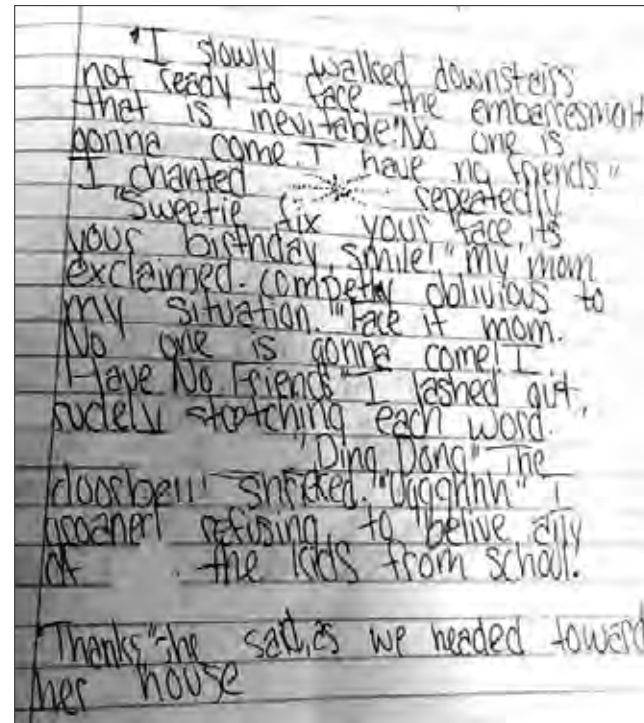 "I slowly walked downstairs
not ready to face the embarresment
that is inevitable."No one is
gonna come. I have no friends"
I chanted repeatedly
"Sweetie fix your face its
your birthday, smile!" my mom
exclaimed. competly oblivious to
my situation. "Face it mom.
No one is gonna come! I
Have No Friends" I lashed out,
rudely stretching each word.
"Ding Dong" The
doorbell shrieked. "Uggghhh" I
groaned refusing to belive any
of the kids from school.
"Thanks" she said, as we headed toward
her house